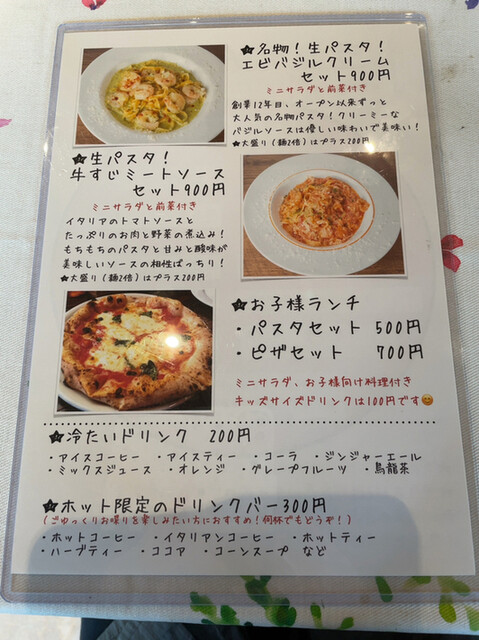 ☆名物!生パスタ!
エビバジルクリーム
セット900円
ミニサラダと前菜付き
創業12年目、オープン以来ずっと
大人気の名物パスタ!クリーミーな
バジルソースは優しい味わいで美味い!
★大盛り(麺2倍)はプラス200円
☆生パスタ!
牛すじミートソース
セット900円
ミニサラダと前菜付き
イタリアのトマトソースと
たっぷりのお肉と野菜の煮込み!
もちもちのパスタと甘みと酸味が
美味しいソースの相性ばっちり!
★大盛り(麺2倍)はプラス200円
☆お子様ランチ
・パスタセット 500円
・ピザセット 700円
ミニサラダ、お子様向け料理付き
キッズサイズドリンクは100円です😊
☆冷たいドリンク 200円
・アイスコーヒー ・アイスティー ・コーラ ・ジンジャーエール
・ミックスジュース ・オレンジ ・グレープフルーツ ・烏龍茶
☆ホット限定のドリンクバー300円
(ごゆっくりお喋りを楽しみたい方におすすめ!何杯でもどうぞ!)
・ホットコーヒー ・イタリアンコーヒー ・ホットティー
・ハーブティー ・ココア ・コーンスープ など